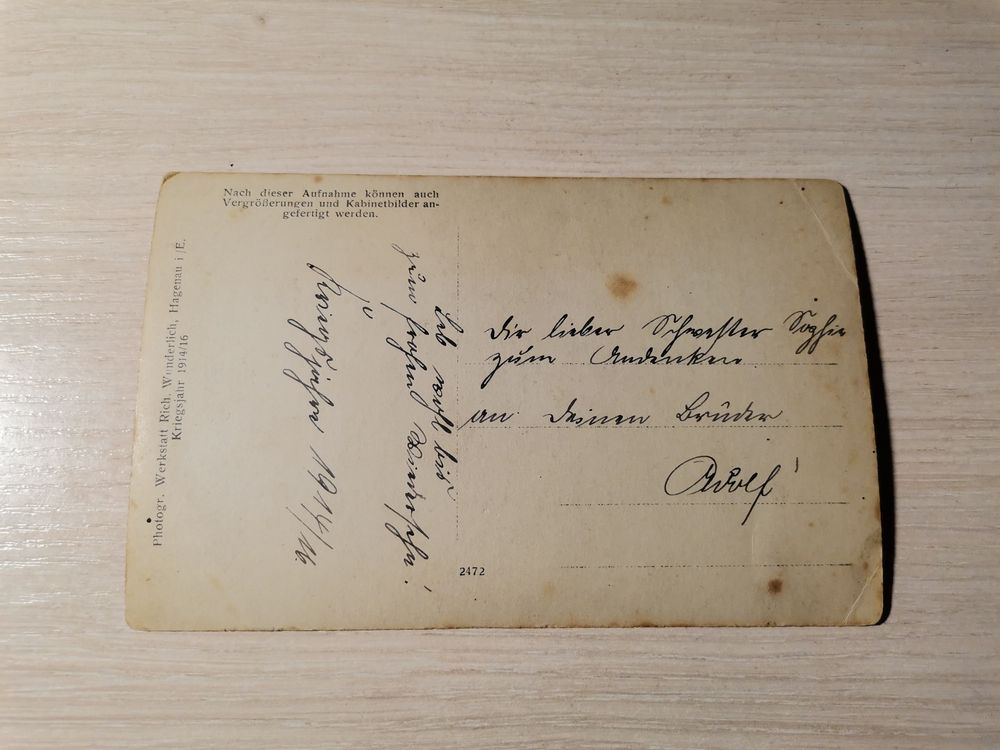 Nach dieser Aufnahme können auch
Vergrößerungen und Kabinetbilder an-
gefertigt werden.
Photogr. Werkstatt Rich. Wunderlich, Hagenau i/E.
Kriegsjahr 1914/16
Dir lieber Schwester Sophie
zum Andenken
an Deinen Bruder
Adolf
Leb wohl bis
zum frohen Wiedersehn!
Kriegsjahr 1914/16.
2472